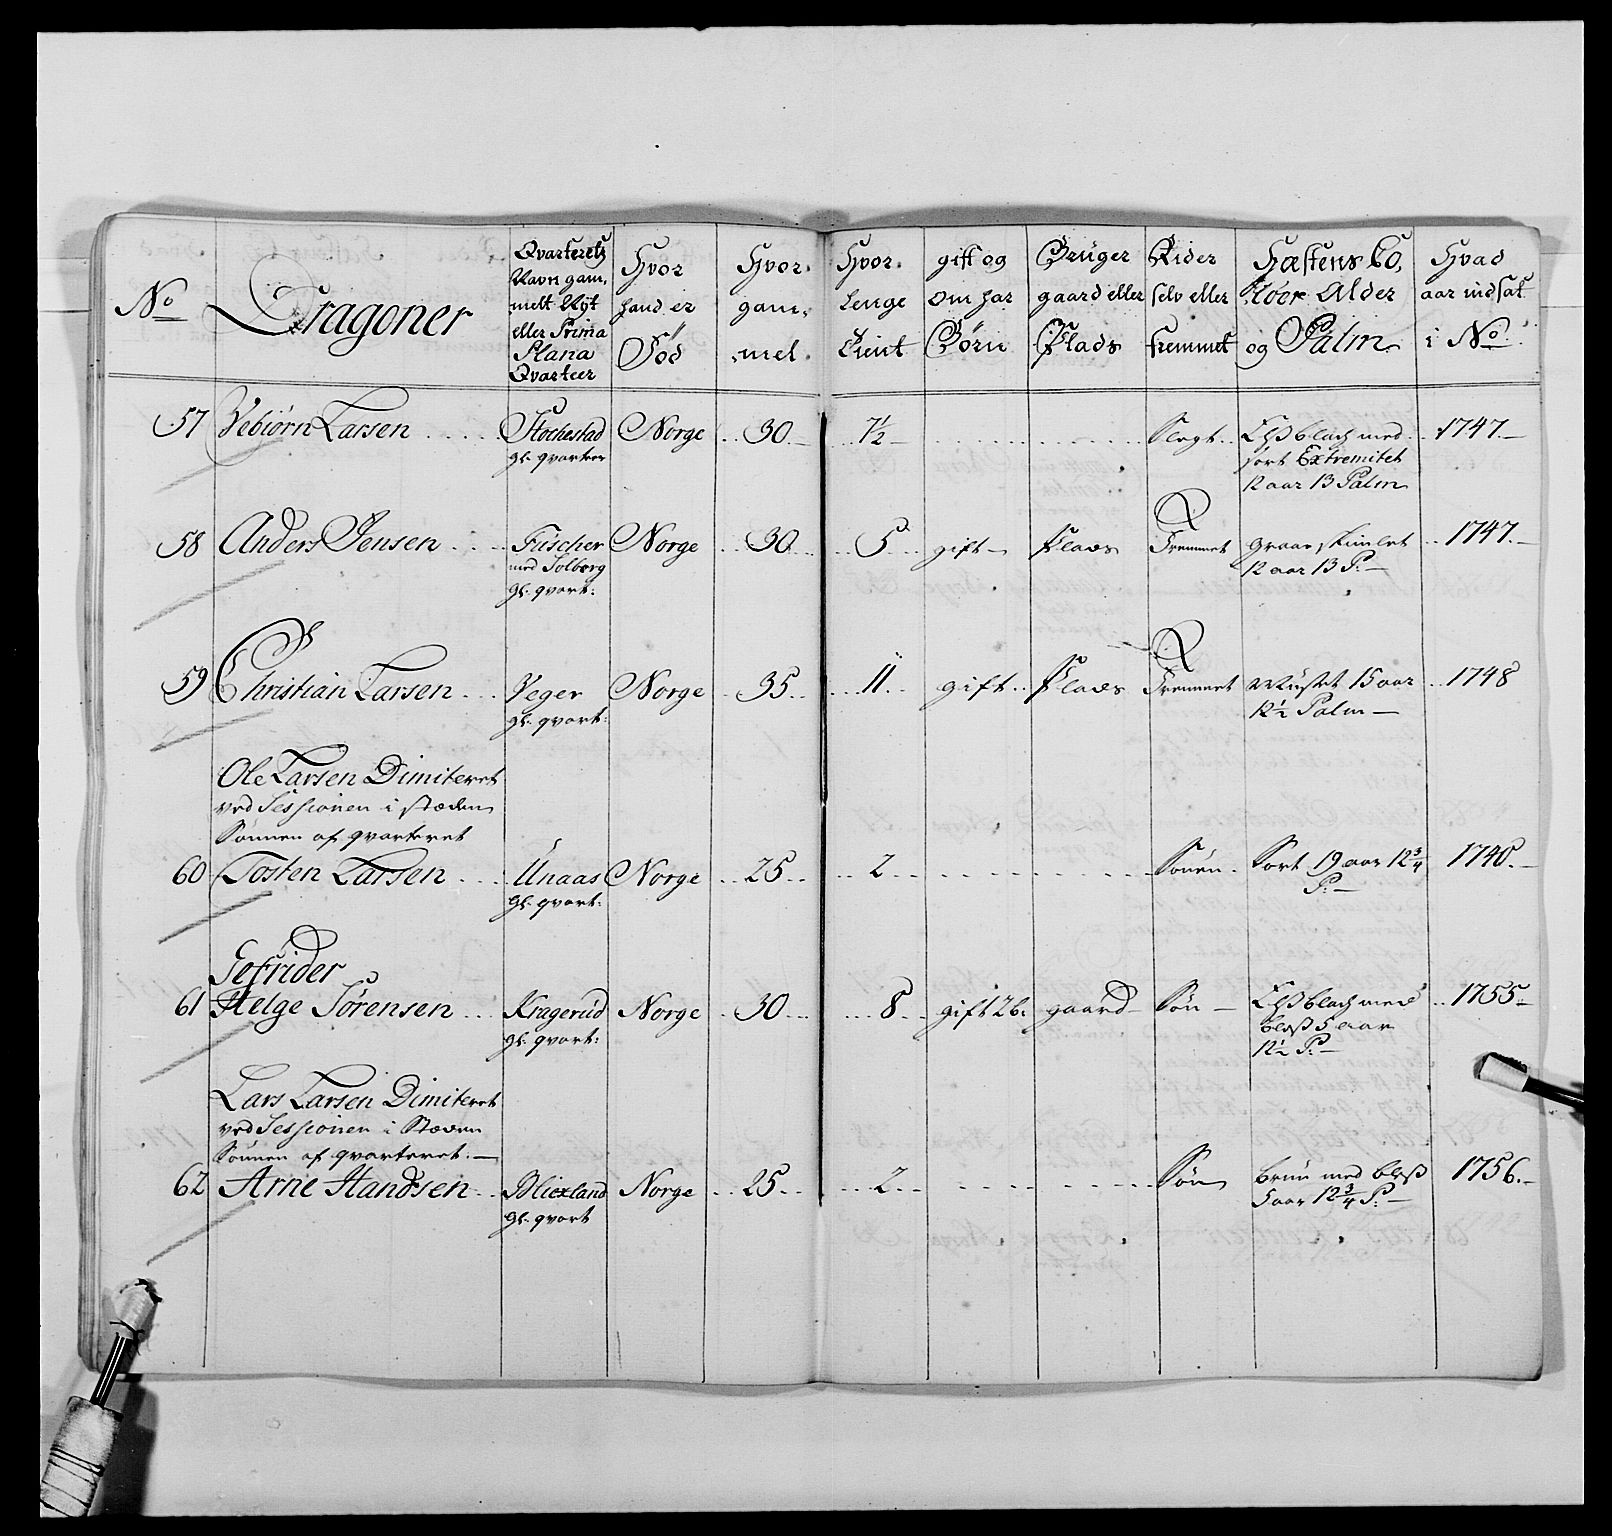 No Dragoner
Qvarterets Navn gam, melt Nyt eller Prima Plana Qvarteer
Hvor hand er Fød
Hvor gam, mel
Hvor Lenge Tient
gift og om har Børn
Bruger gaard eller Plads
Rider selv eller fremmet
Hæstens Co, löer Alder og Palm
Hvad aar indsat i No
57 Vebiørn Larsen Stochestad Norge 30 7½ Slegt. blach med 1747.
gl. qvarteer sort Extremitet
12 aar 13 Palm
58 Anders Jensen Fúscher Norge 30 5 gift Plads Fremmet graae skimlet 1747.
med Solberg 12 aar 13 P:
gl. qvart:
59 Christian Larsen Veger Norge 35 11 gift Plads Fremmet Músket 15 aar 1748
gl. qvart: 12½ Palm
Ole Larsen Dimiteret
ved Sessionen i stæden
Sønnen af qvarteret
60 Tosten Larsen Unaas Norge 25 2 Sönen. Sort 19 aar 12¾ 1740.
gl. qvart: P:
Gefrider
61 Helge Sørensen Kragerúd Norge 30 8 gift 2 b. gaard Søn blach med 1755
gl. qvart: bless 5 aar
12½ P:
Lars Larsen Dimiteret
ved Sessionen i Stæden
Sønnen af qvarteret.
62 Arne Handsen Blixland Norge 25 2 Søn brún med bless 1756.
gl. qvart 5 aar 12¾ P: